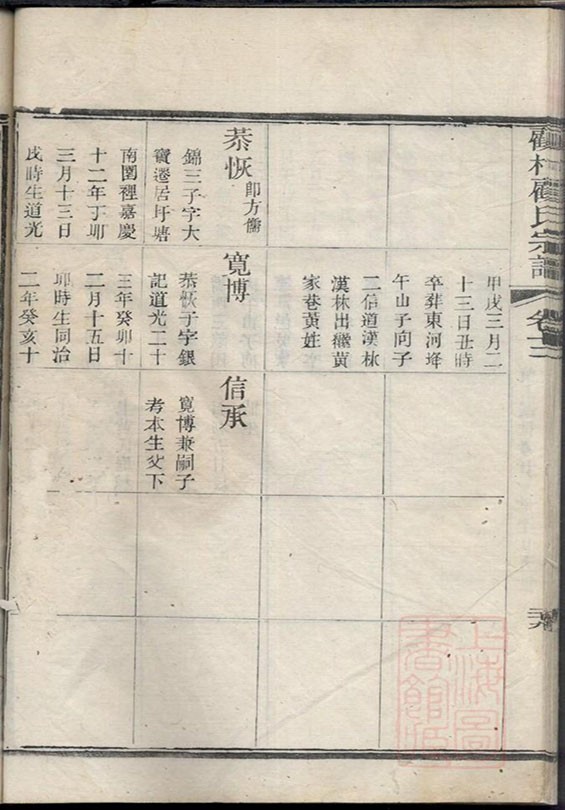 村 氏宗譜
卷十二
甲戌三月二
十三日丑時
卒葬東河墷
午山子向子
二信道漢林
漢林出繼黃
家巷黃姓
恭恢 卽方
錦三子字大
寶遷居圩塘
南圍裡嘉慶
十二年丁卯
三月十三日
戌時生道光
寬博
恭恢子字銀
記道光二十
三年癸卯十
二月十五日
卯時生同治
二年癸亥十
信承
寬博兼嗣子
考本生父下
上海圖書館藏